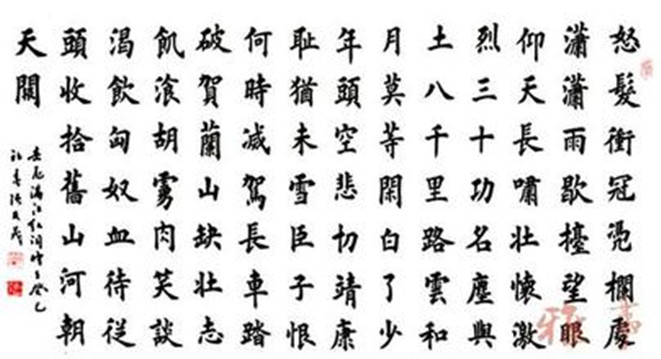 怒髮衝冠凭欄處
瀟瀟雨歇擡望眼
仰天長嘯壯懷激
烈三十功名塵與
土八千里路雲和
月莫等閑白了少
年頭空悲切靖康
耻猶未雪臣子恨
何時滅駕長車踏
破賀蘭山缺壯志
飢飡胡虜肉笑談
渴飲匈奴血待從
頭收拾舊山河朝
天闕
岳飛滿江紅詞時在癸巳
初春